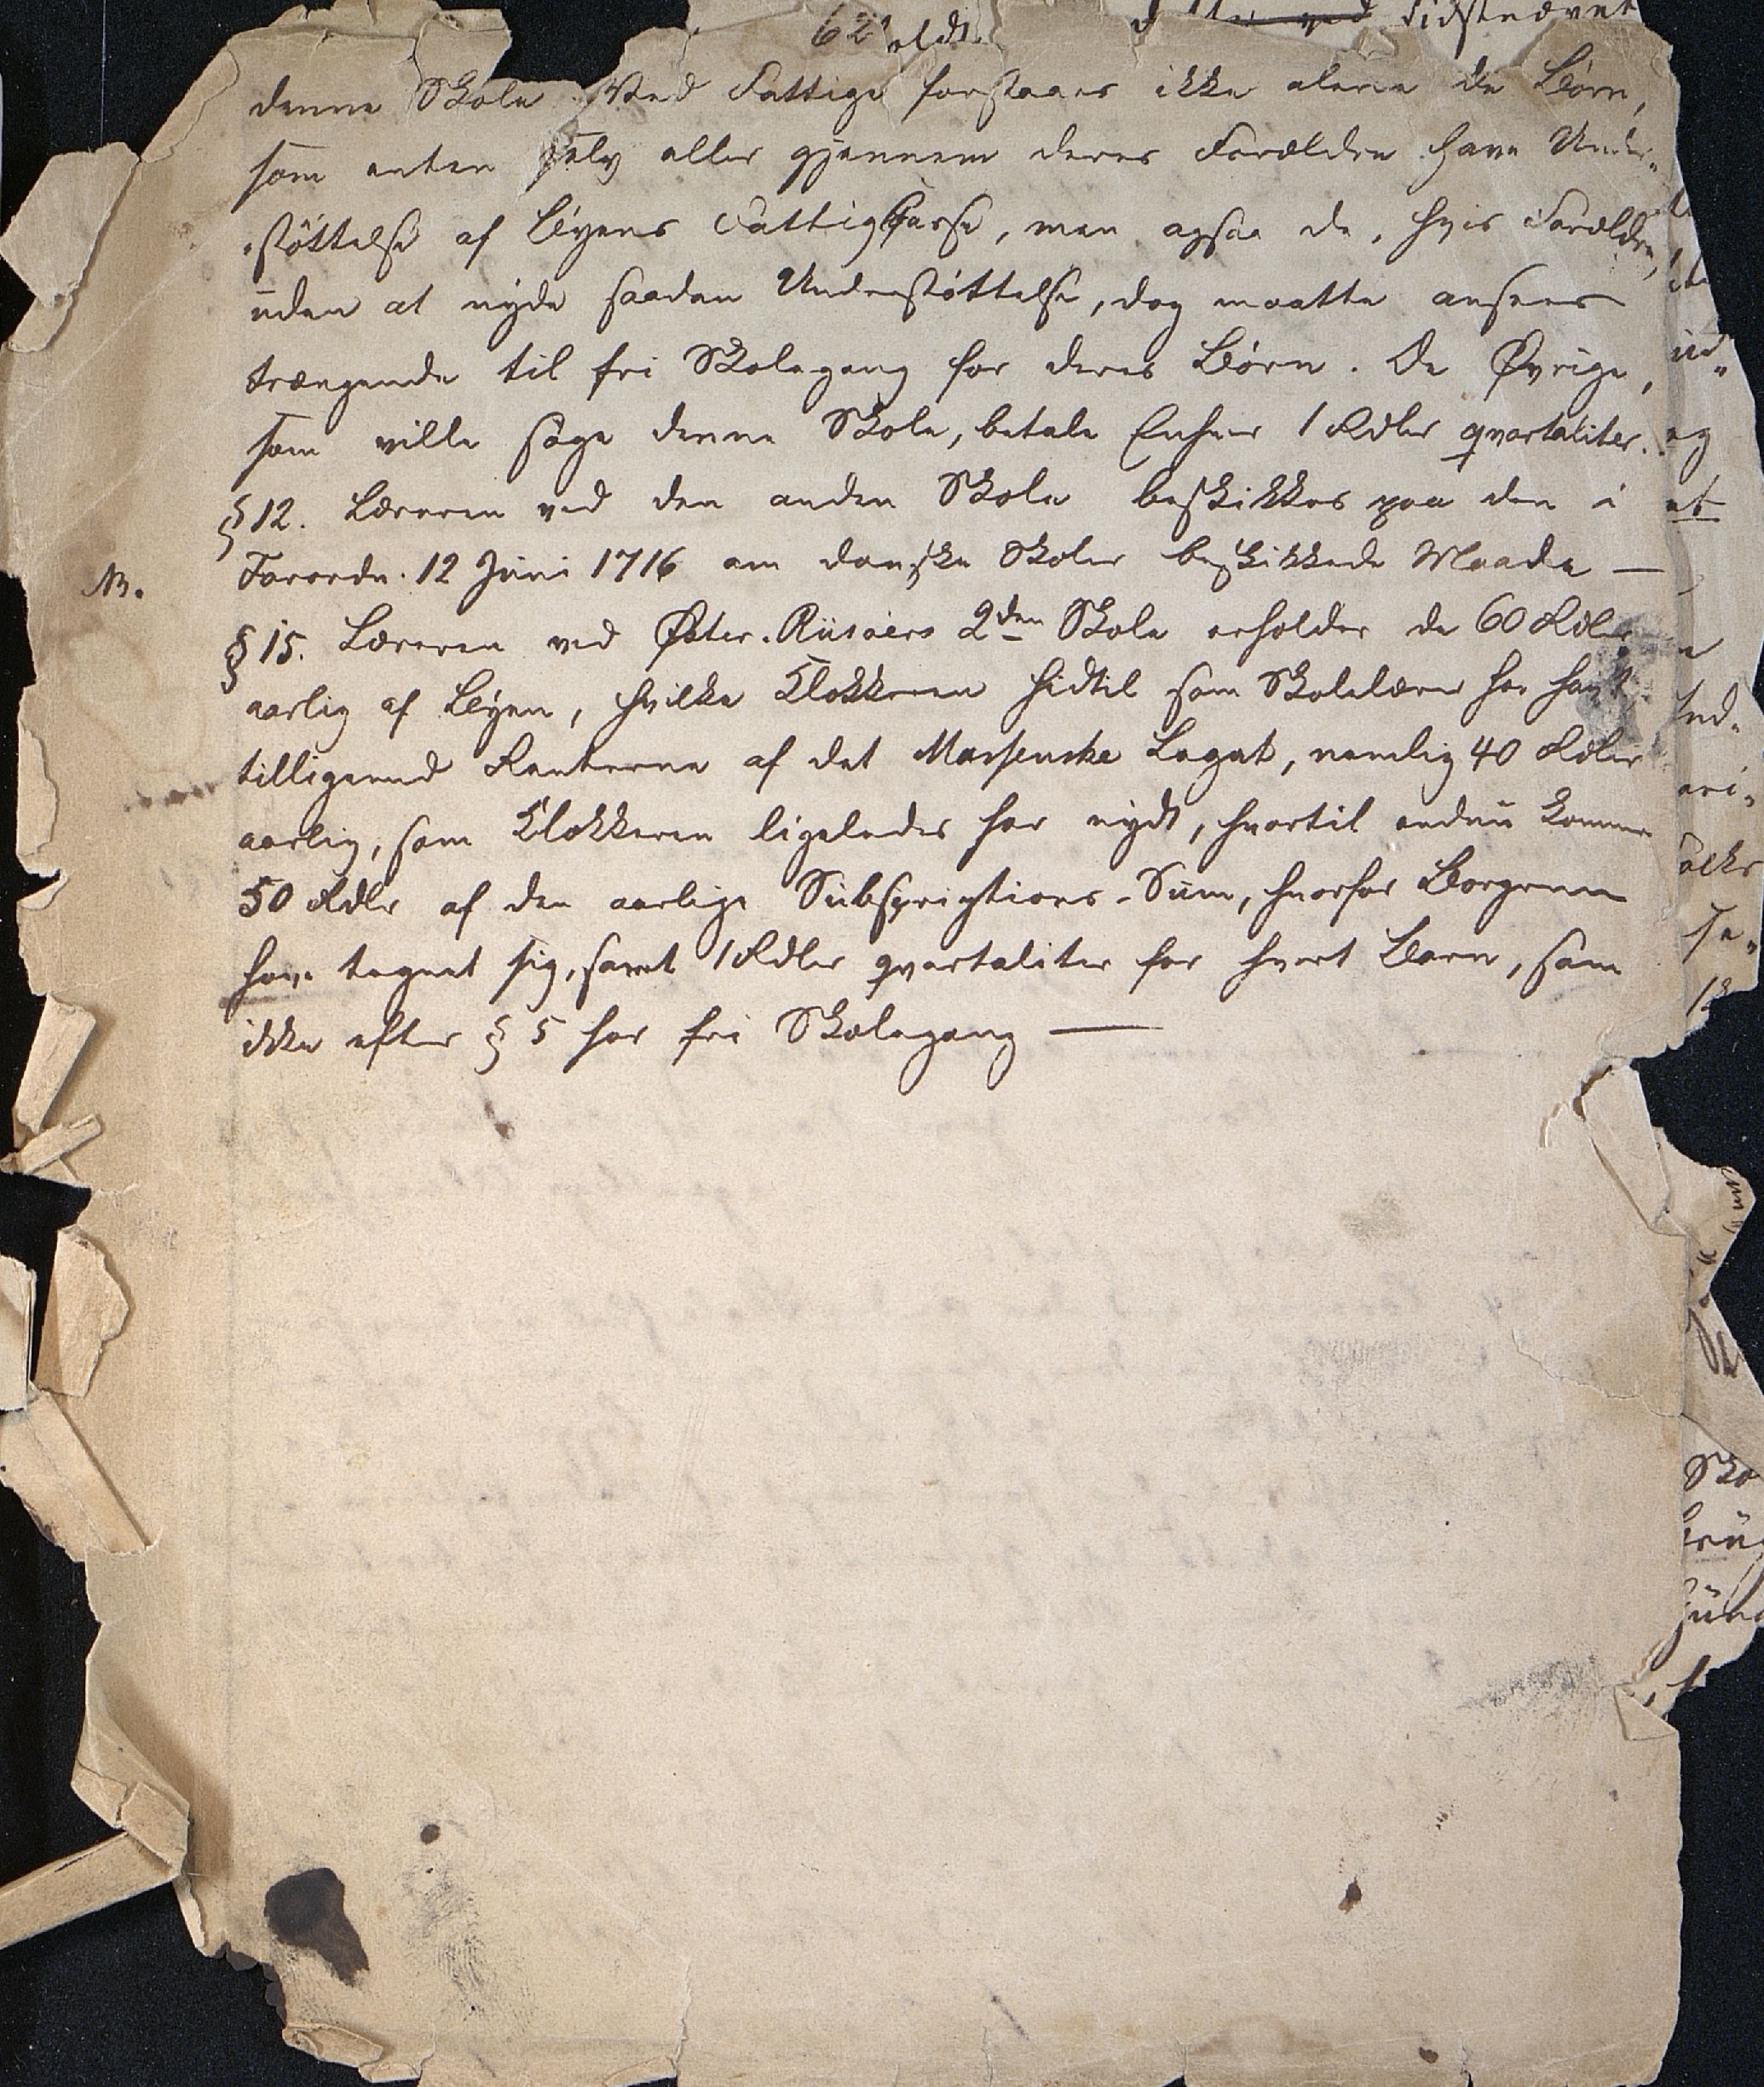 62 oldt
sidstnævnt
denne Skole. Ved Fattige forstaaes ikke alene de Børn,
som enten selv eller gjennem deres Forældre have Under-
støttelse af Byens Fattigkasse, men ogsaa de, hvis Forældre,
uden at nyde saadan Understøttelse, dog maatte ansees
trængende til fri Skolegang for deres Børn. De Øvrige,
som ville søge denne Skole, betale Enhver 1 Rdlr qvartaliter.
§ 12. Læreren ved den anden Skole beskikkes paa den i
NB. Forordn. 12 Juni 1716 om danske Skoler beskikkede Maade —
§ 15. Læreren ved Øster-Riisøers 2den Skole erholder de 60 Rdlr
aarlig af Byen, hvilke Klokkeren hidtil som Skolelærer har havt
tilligemed Renterne af det Massenske Legat, nemlig 40 Rdlr
aarlig, som Klokkeren ligeledes har nydt, hvortil endnu komme
50 Rdlr af den aarlige Subscriptions-Sum, hvorfor Borgerne
have tegnet sig, samt 1 Rdlr qvartaliter for hvert Barn, som
ikke efter § 5 har fri Skolegang —